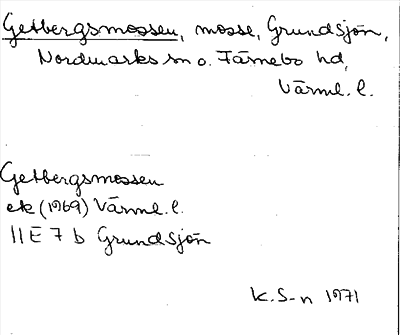 Getbergsmossen, mosse, Grundsjön,
Nordmarks sn o. Färnebo hd,
Värml. l.
Getbergsmossen
ek (1969) Värml. l.
11E 7 b Grundsjön
K. S-n 1971